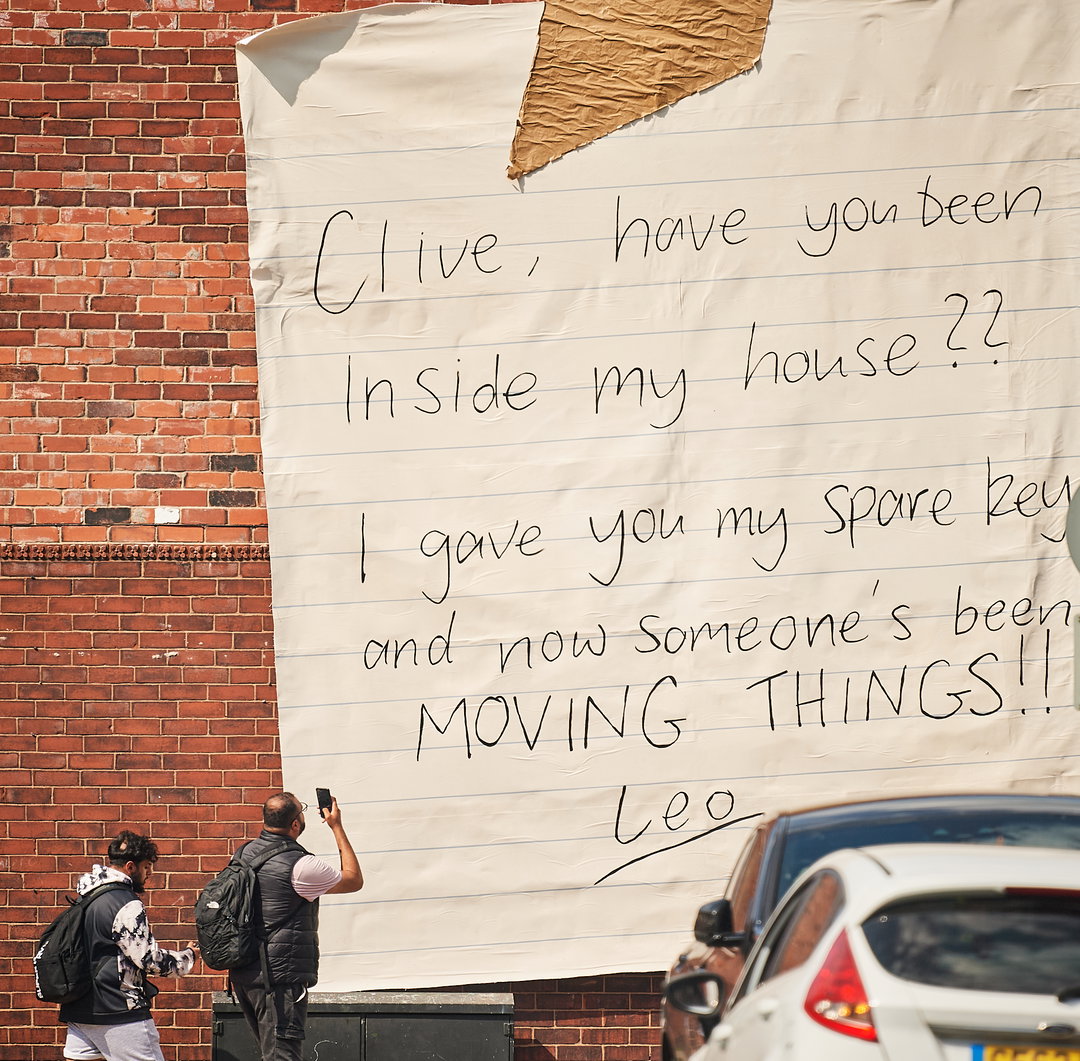 Clive, have you been
Inside my house??
I gave you my spare key
and now someone's been
MOVING THINGS!!
Leo